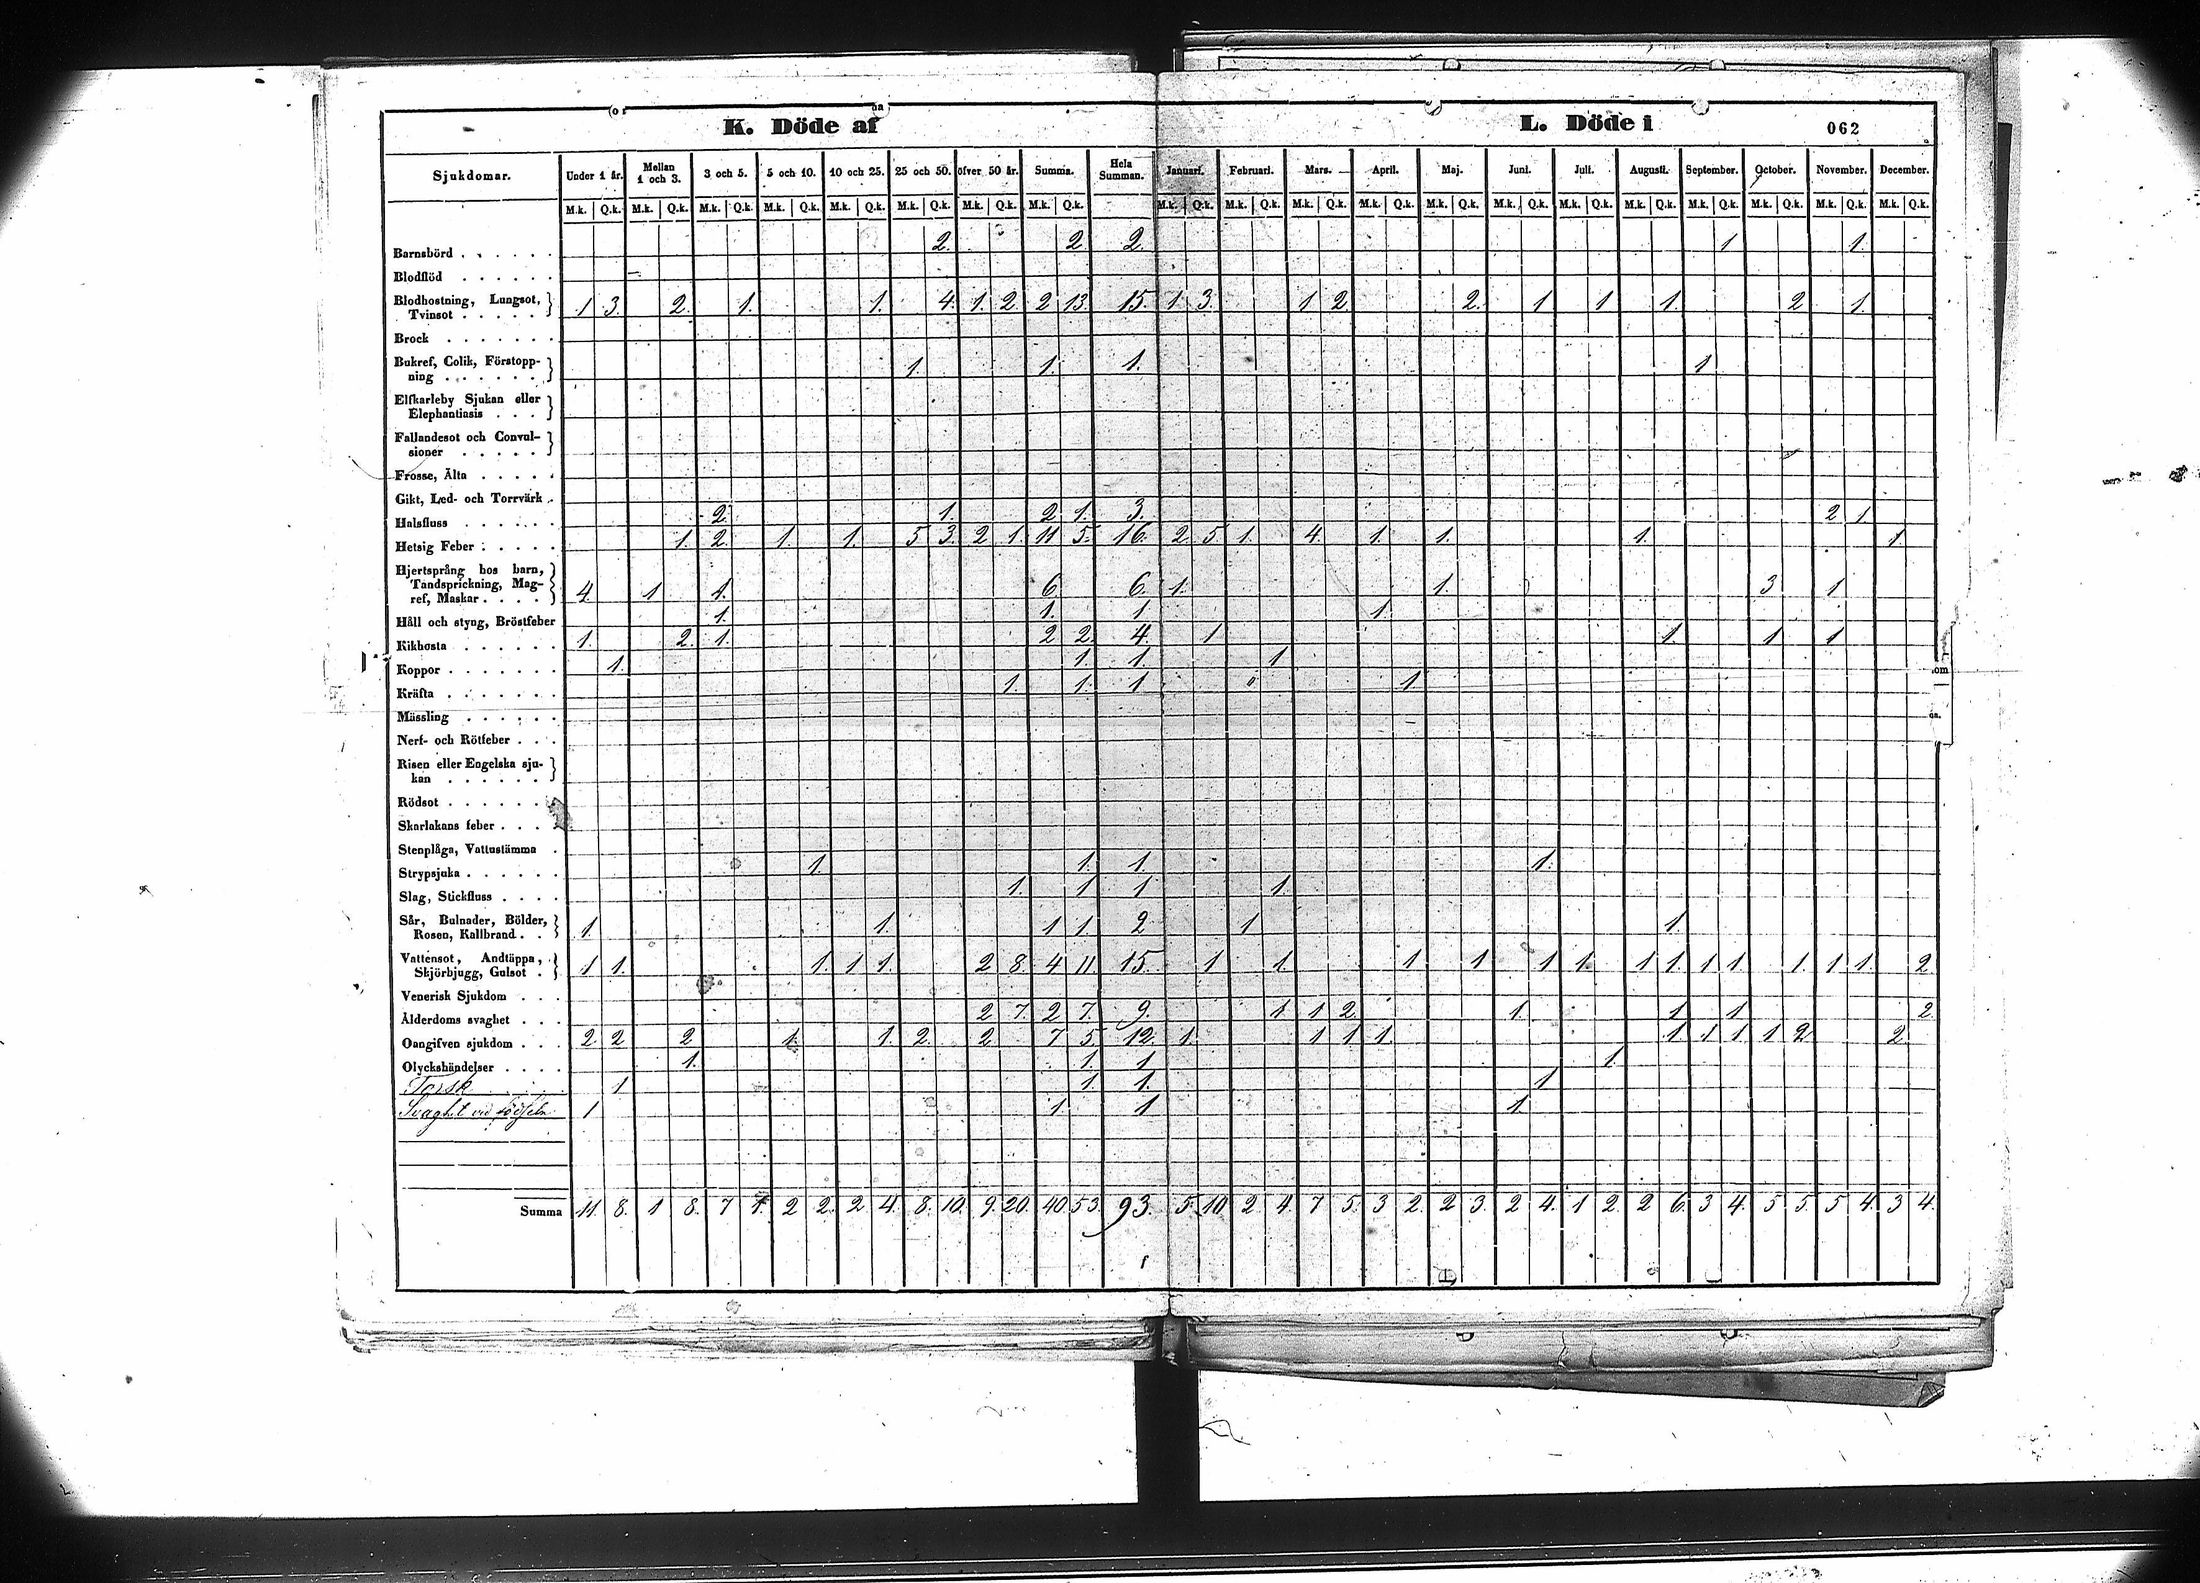 K. Döde af
L. Döde i 062
Sjukdomar. Under 1 år. Mellan 1 och 3. 3 och 5. 5 och 10. 10 och 25. 25 och 50. öfver 50 år. Summa. Hela Summan. Januari. Februari. Mars. April. Maj. Juni. Juli. Augusti. September. October. November. December.
M.k. Q.k. M.k. Q.k. M.k. Q.k. M.k. Q.k. M.k. Q.k. M.k. Q.k. M.k. Q.k. M.k. Q.k. M.k. Q.k. M.k. Q.k. M.k. Q.k. M.k. Q.k. M.k. Q.k. M.k. Q.k. M.k. Q.k. M.k. Q.k. M.k. Q.k. M.k. Q.k. M.k. Q.k. M.k. Q.k.
Barnsbörd 2. 2 2 1 1.
Blodflöd
Blodhostning, Lungsot,
Tvinsot 1 3. 2. 1. 1. 4. 1. 2. 2 13. 15. 1 3. 1 2. 2. 1 1 1. 2 1.
Brock
Bukref, Colik, Förstopp-
ning 1. 1. 1. 1
Elfkarleby Sjukan eller
Elephantiasis
Fallandesot och Convul-
sioner
Frosse, Älta
Gikt, Led- och Torrvärk
Halsfluss 2. 1. 2 1. 3. 2 1.
Hetsig Feber 1. 2. 1. 1. 5 3. 2 1. 11 5. 16. 2 5 1. 4. 1. 1. 1. 1.
Hjertsprång hos barn,
Tandsprickning, Mag-
ref, Maskar 4. 1 1. 6. 6. 1. 1. 3 1
Håll och styng, Bröstfeber 1. 1. 1 1.
Kikhosta 1. 2. 1. 2 2. 4. 1 1. 1 1
Koppor 1. 1. 1. 1
Kräfta 1. 1. 1 1.
Mässling
Nerf- och Rötfeber
Risen eller Engelska sju-
kan
Rödsot
Skarlakans feber
Stenplåga, Vattustämma
Strypsjuka 1. 1. 1. 1.
Slag, Stickfluss 1. 1 1 1.
Sår, Bulnader, Bölder,
Rosen, Kallbrand 1. 1. 1 1. 2 1 1
Vattensot, Andtäppa,
Skjörbjugg, Gulsot 1 1. 1. 1 1. 2 8. 4 11 15. 1 1. 1 1 1 1 1 1. 1 1 1. 1 1. 2
Venerisk Sjukdom
Ålderdoms svaghet 2 7. 2 7. 9. 1 1 2. 1 1 1 2
Oangifven sjukdom 2 2 2 1 1. 2. 2 7 5. 12. 1. 1 1 1 1 1 1 1 2 2.
Olyckshändelser 1. 1. 1 1.
Torsk 1 1. 1. 1
Svaghet vid födseln 1 1 1 1
Summa 11. 8. 1 8. 7 1. 2 2. 2 4. 8. 10. 9. 20. 40. 53. 93. 5. 10 2 4. 7 5. 3 2. 2 3. 2 4. 1 2. 2 6. 3 4. 5 5. 5 4. 3 4.